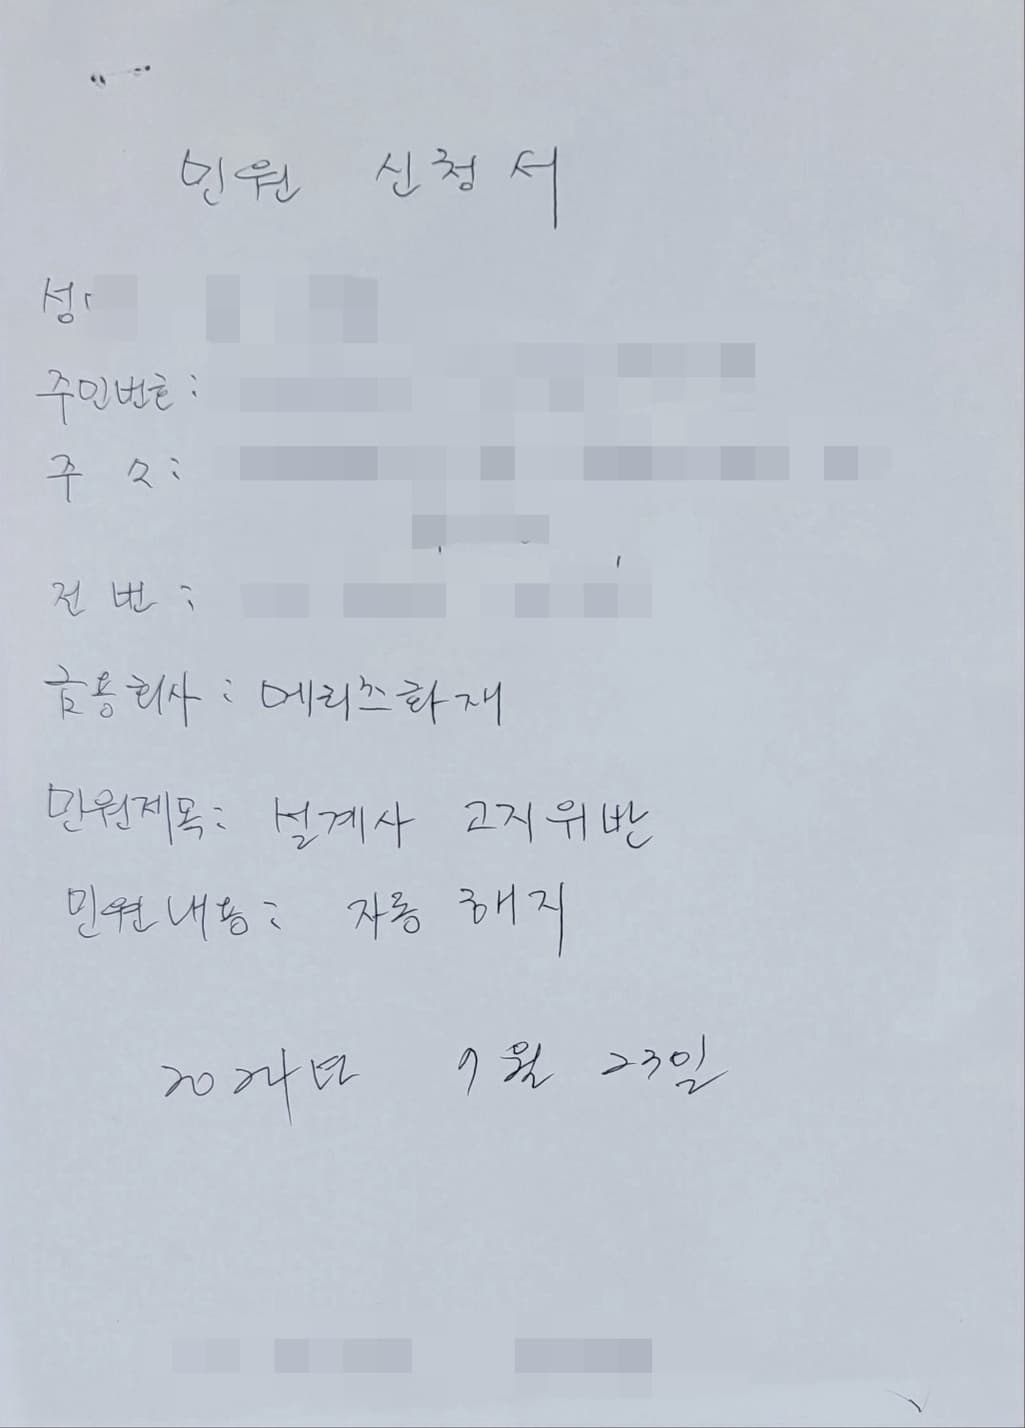 민원 신청서
성
주민번호 :
주 소 :
전 번 :
금융회사 : 메리츠화재
민원제목 : 설계사 고지위반
민원내용 : 자동 해지
2024년 9월 23일